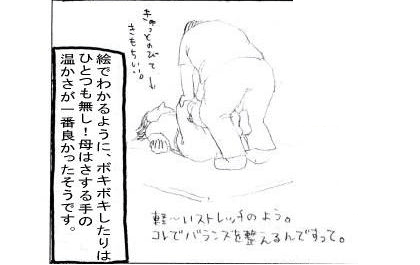 きゅっとのびて
きもちいい。
絵でわかるように、ボキボキしたりは
ひとつも無し！母はさする手の
温かさが一番良かったそうです。
軽〜いストレッチのよう。
コレでバランスを整えるんですって。